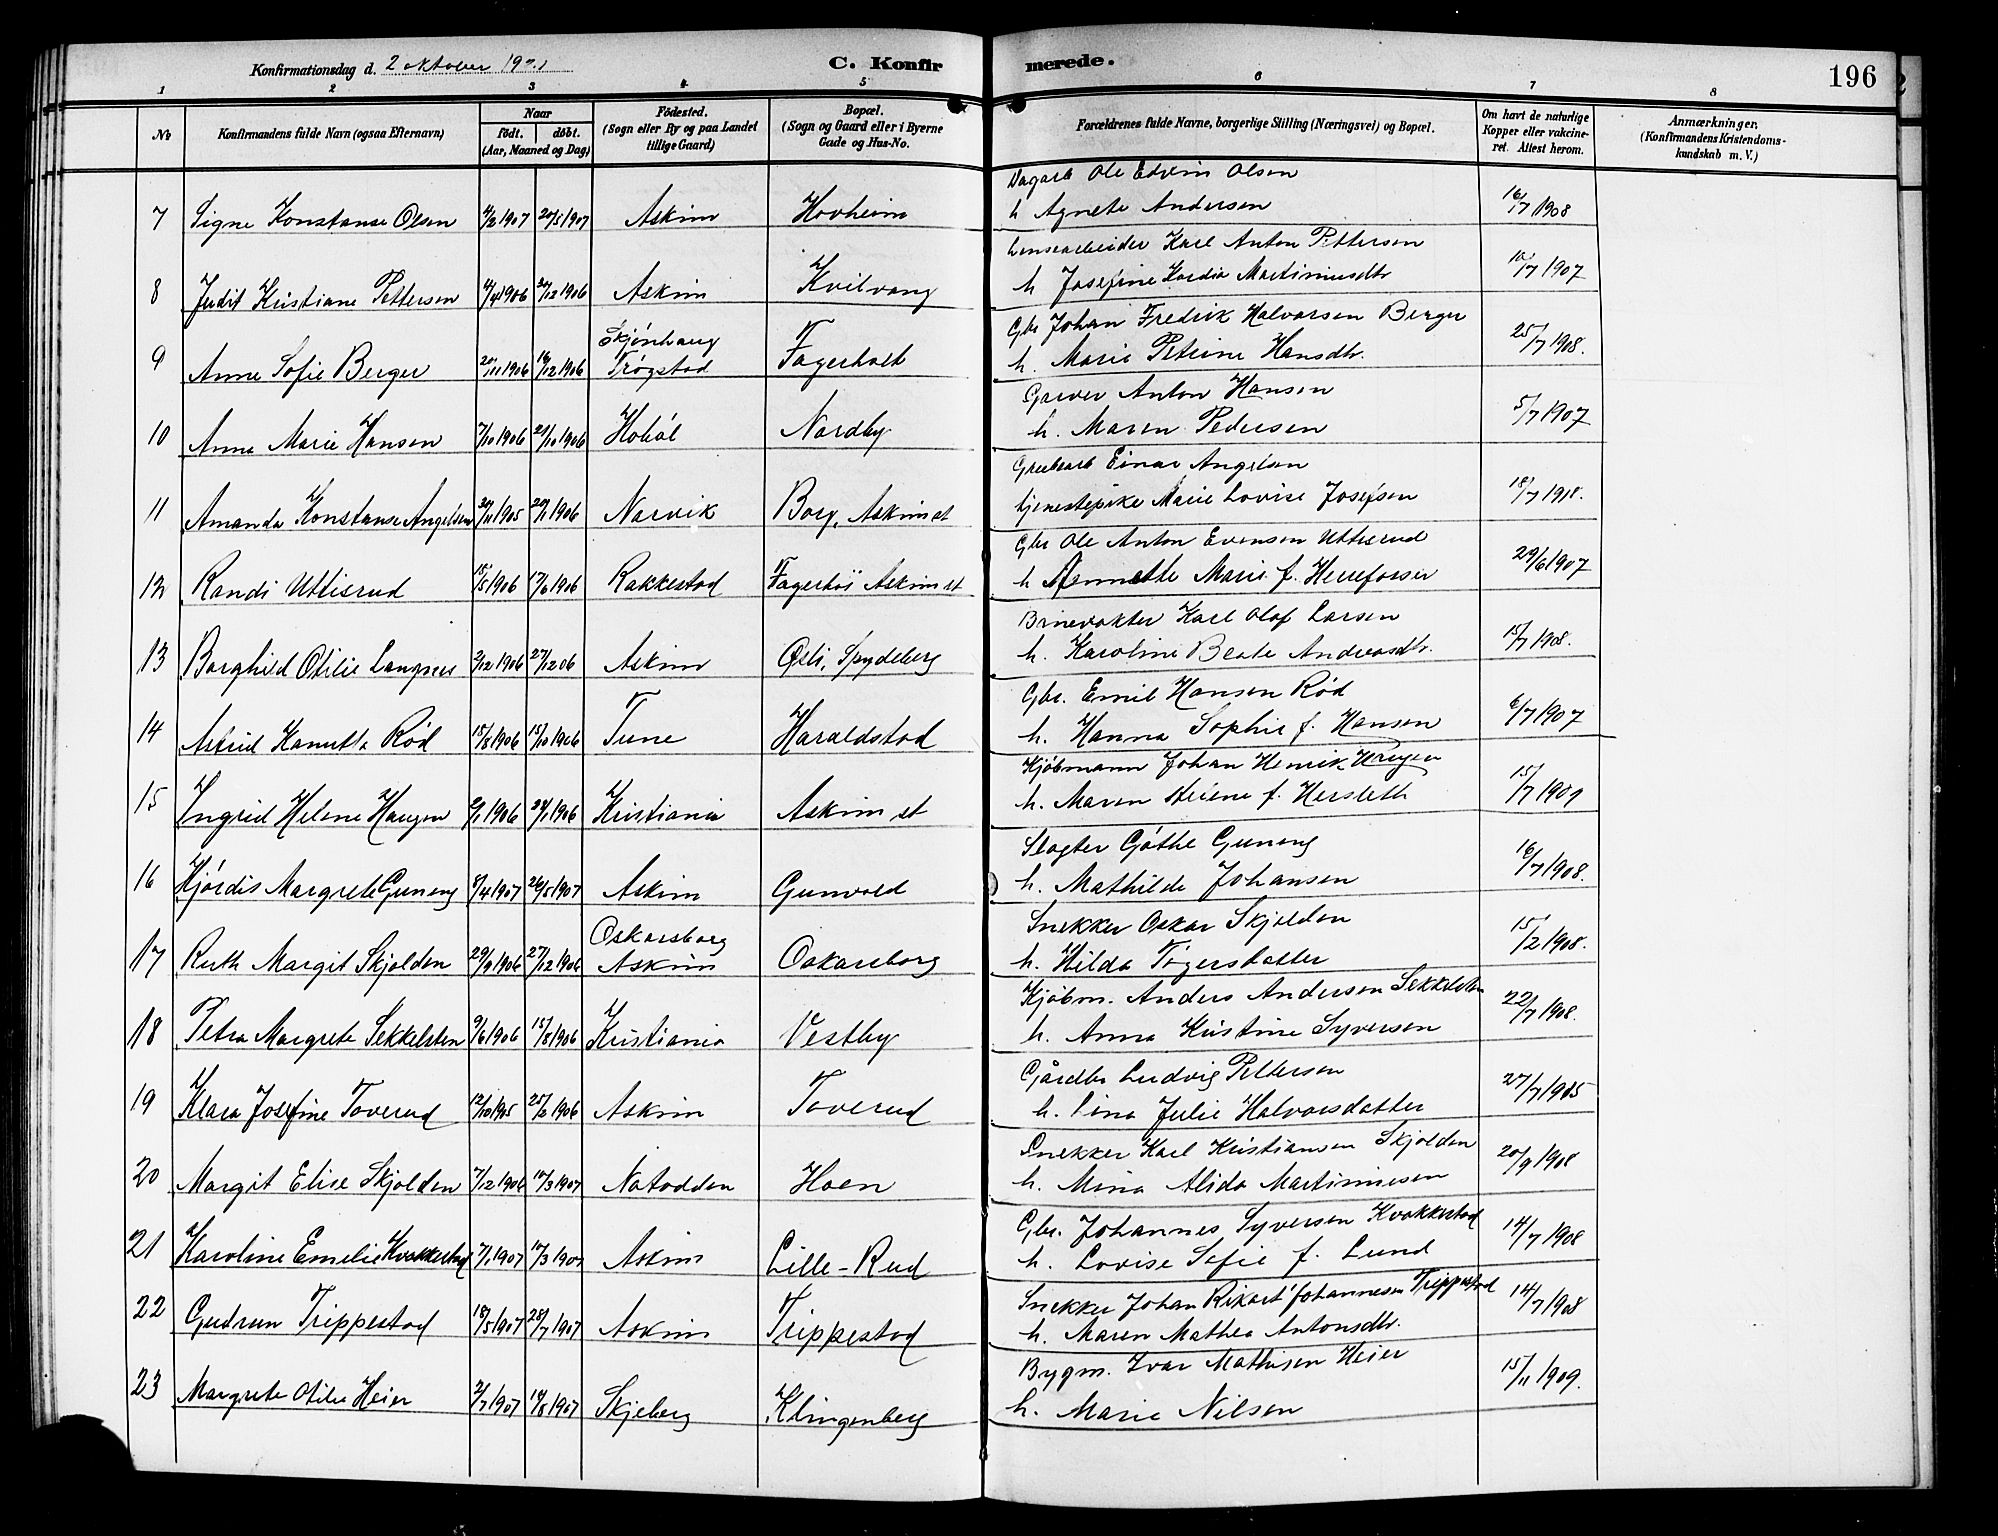 Konfirmationsdag d. 2 oktober 1921
C. Konfirmerede.
196
1 2 3 4 5 6 7 8
No
Konfirmandens fulde Navn (ogsaa Efternavn)
Naar
födt. döbt.
(Aar, Maaned og Dag)
Födested.
(Sogn eller By og paa Landet
tillige Gaard)
Bopæl.
(Sogn og Gaard eller i Byerne
Gade og Hus-No.
Forældrenes fulde Navne, borgerlige Stilling (Næringsvei) og Bopæl.
Om havt de naturlige
Kopper eller vakcine-
ret. Attest herom.
Anmærkninger,
(Konfirmandens Kristendoms-
kundskab m. V.)
Dagarb Ole Edvin Olsen
7 Signe Konstanse Olsen 4/2 1907 20/5 1907 Askim Hovheim h Agnete Andersen 16/7 1908
Lensearbeider Karl Anton Pettersen
8 Judit Kristiane Pettersen 11/4 1906 26/12 1906 Askim Kvilvang h Josefine Kardia Martiniusdtr 10/7 1907
Skjønhaug Gbr Johan Fredrik Halvorsen Berger
9 Anne Sofie Berger 20/11 1906 16/12 1906 Trøgstad Fagerholt h. Marie Petrine Hansdtr. 25/7 1908.
Garver Anton Hansen
10 Anna Marie Hansen 7/10 1906 21/10 1906 Hobøl Nordby h. Maren Pedersen 5/7 1907
Grubearb Einar Angelsen
11 Amanda Konstanse Angelsen 30/11 1905 20/1 1906 Narvik Borg, Askim st tjenestepike Marie Lovise Josefsen 18/7 1918.
Gbr Ole Anton Evensen Uttisrud
12 Randi Uttisrud 15/5 1906 17/6 1906 Rakkestad Fagerhöi Askim st h Annette Marie f. Herrefosser 29/6 1907
Brinevakter Karl Olaf Larsen
13 Borghild Otilie Langnes 2/12 1906 27/12 06 Askim Osli, Spydeberg h. Karoline Beate Andreasdtr. 15/7 1908.
Gbr. Emil Hansen Rød
14 Astrid Kamilla Rød 15/8 1906 13/10 1906 Tune Haraldstad h. Hanna Sophie f. Hansen 6/7 1907
Kjöbmann Johan Henrik Haugen
15 Ingrid Helene Haugen 2/1 1906 24/1 1906 Kristiania Askim st h. Maren Helene f. Hersleth 15/7 1909
Slagter Göthe Guneng
16 Hjördis Margrete Guneng 8/4 1907 26/5 1907 Askim Gunvold h. Mathilde Johansen 16/7 1908.
Oskarsborg Snekker Oskar Skjolden
17 Ruth Margit Skjolden 29/9 1906 27/12 1906 Askim Oskarsborg h. Hilda Tøgersdatter 15/2 1908.
Kjöbm. Anders Andersen Sekkelsten
18 Petra Margrete Sekkelsten 9/6 1906 15/8 1906 Kristiania Vestby h. Anna Kristine Syversen 22/7 1908.
Gårdbr Ludvig Pettersen
19 Klara Josefine Toverud 12/10 1905 25/2 1906 Askim Toverud h. Lina Julie Halvorsdatter 27/7 1905
Snekker Karl Kristiansen Skjolden
20 Margit Elise Skjolden 7/12 1906 17/3 1907 Notodden Hoen h. Mina Alida Martiniusen 20/9 1908
Gbr. Johannes Syversen Kvakkestad
21 Karoline Emelie Kvakkestad 7/1 1907 17/3 1907 Askim Lille-Rud h. Lovise Sofie f. Lund 14/7 1908
Snekker Johan Rikart Johannesen Trippestad
22 Gudrun Trippestad 18/5 1907 28/7 1907 Askim Trippestad h. Maren Mathea Antonsdtr. 14/7 1908
Bygm. Ivar Mathisen Heier
23 Margrete Otilie Heier 2/7 1907 14/8 1907 Skjeberg Klingenberg h. Marie Nilsen 15/11 1909.